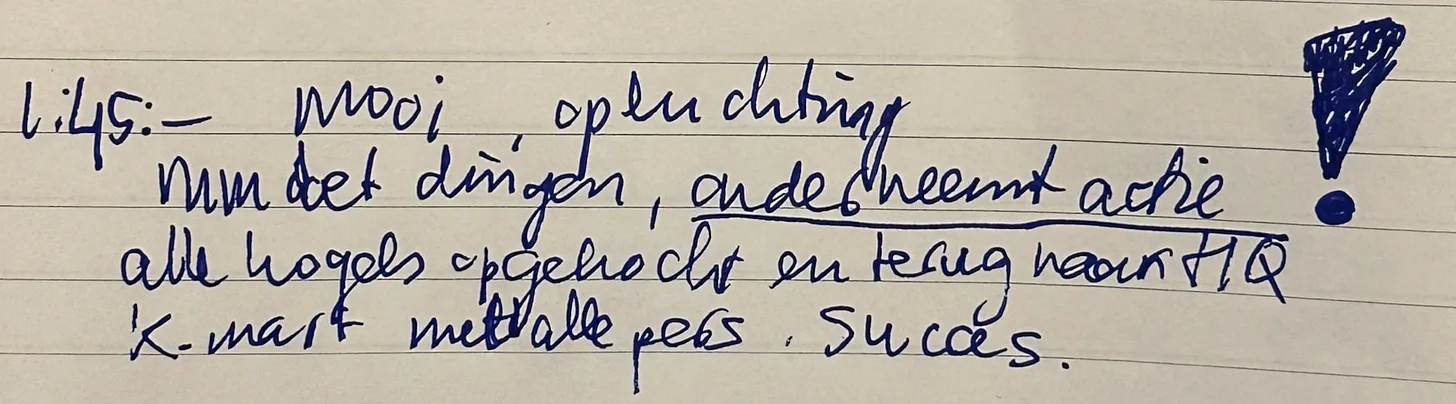 1:45:- mooi, opluchting
MM doet dingen, onderneemt actie
alle kogels opgekocht en terug naar HQ
K-mart met alle pers. Succes.
!